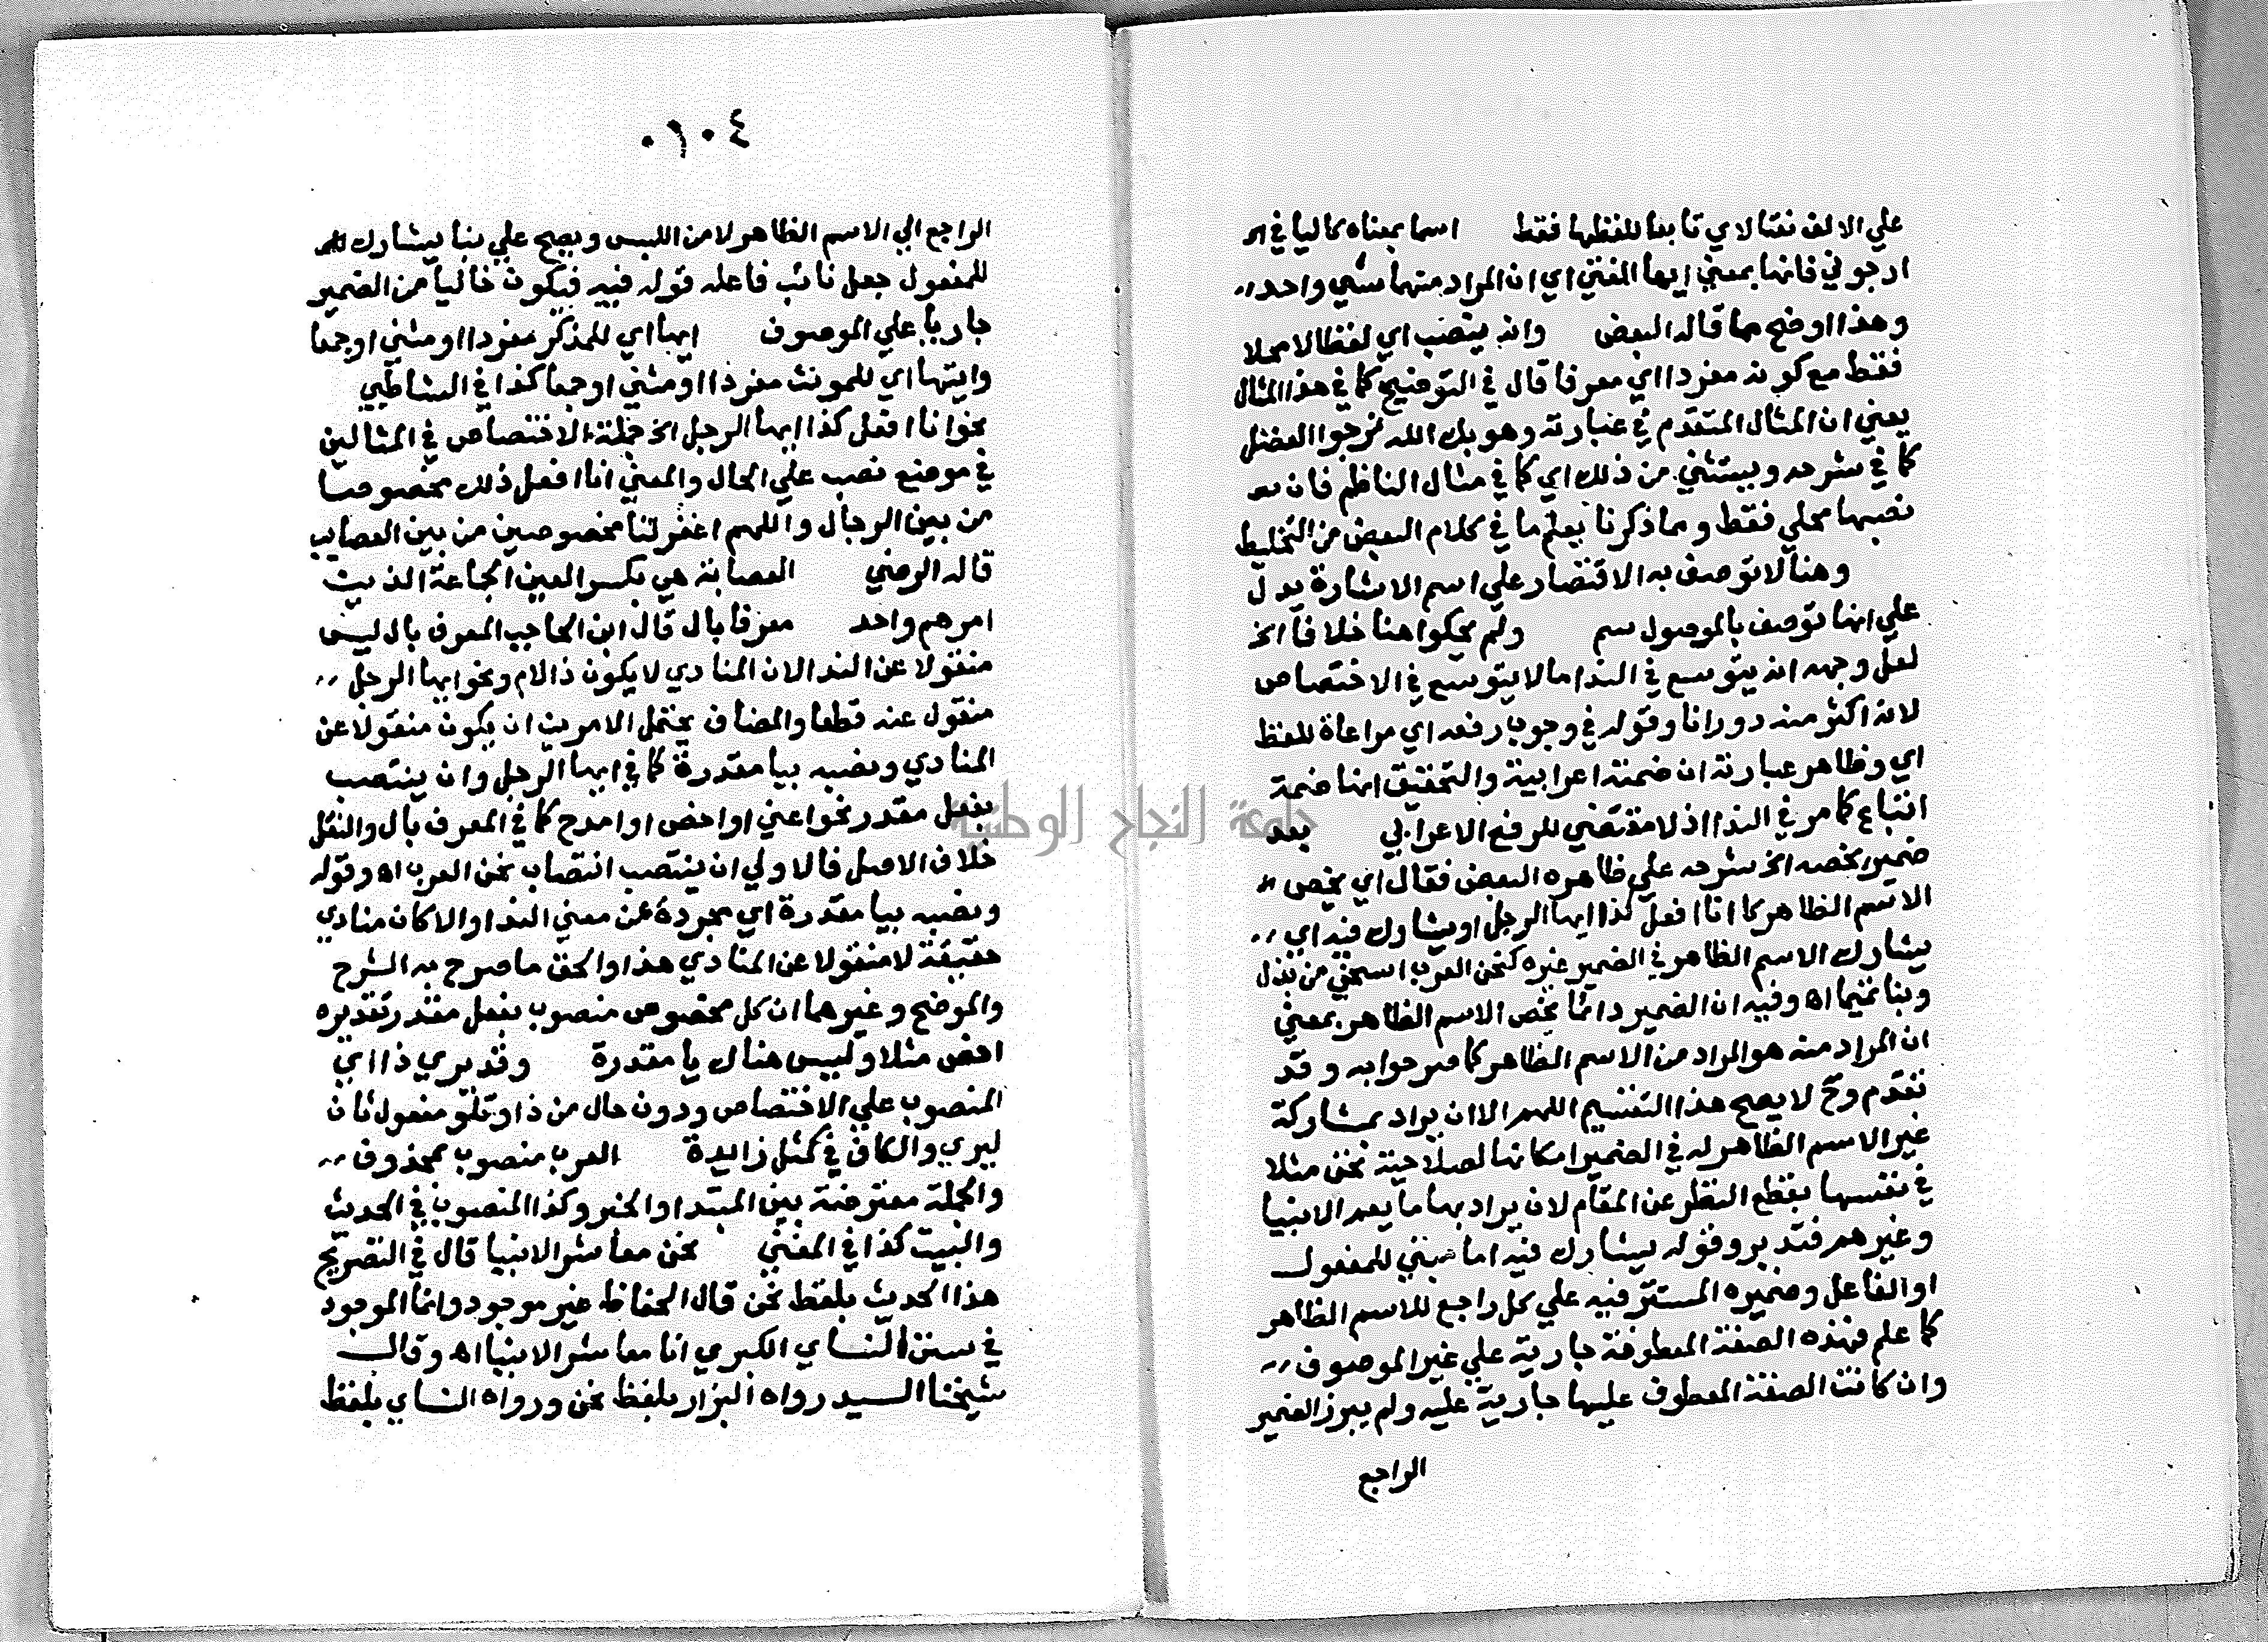 علي الالف نعتا لاي تابعا للفظها فقط اسما بمعناه كاليا في
ارجوني فانها بمعني ايها الفتي اي ان المراد منهما شي واحد
وهذا اوضح مما قاله البعض وانه ينتصب اي لفظا لا محلا
فقط مع كونه مفردا اي معرفا قال في التوضيح كما في هذا المثال
يعني ان المثال المتقدم في عبارته وهو بك الله نرجوا الفضل
كما في شرحه ويستثني من ذلك اي كما في مثال الناظم فان
نصبها محلي فقط ومما ذكرنا يعلم ما في كلام البعض من التخليط
وهنا لا توصف به الاقتصار علي اسم الاشارة يدل
علي انها توصف بالموصول سم ولم يحكوا هنا خلافا الخ
لعل وجهه انه يتوسع في الندا ما لا يتوسع في الاختصاص
لانه اكثر منه دورانا وقوله في وجوب رفعه اي مراعاة للفظ
اي وظاهر عبارته ان ضمته اعرابية والتحقيق انها ضمة
اتباع كما مر في الندا اذ لا مقتضي للرفع الاعرابي بعد
ضمير يخصه الخ شرحه علي ظاهره البعض فقال اي يخص
الاسم الظاهر كانا افعل كذا ايها الرجل او يشارك فيه اي
يشارك الاسم الظاهر في الضمير غيره كنحن العرب اسخي من بذل
وبنا تميما اه وفيه ان الضمير دائما يخص الاسم الظاهر بمعني
ان المراد منه هو المراد من الاسم الظاهر كما صرحوا به وقد
تقدم وح لا يصح هذا التقسيم اللهم الا ان يراد بمشاركة
غير الاسم الظاهر له في الضمير امكانها لصلاحية نحن مثلا
في نفسها بقطع النظر عن المقام لان يراد بها ما يعم الانبيا
وغيرهم فتدبر وقوله يشارك فيه اما مبني للمفعول
او الفاعل وضميره المستتر فيه علي كل راجع للاسم الظاهر
كما علم فهذه الصفة المعطوفة جارية علي غير الموصوف
وان كانت الصفة المعطوف عليها جارية عليه ولم يبرز الضمير
الراجع
٠١٠٤
الراجع الي الاسم الظاهر لامن اللبس ويصح علي بنا يشارك
للمفعول جعل نائب فاعله قوله فيه فيكون خاليا من الضمير
جاريا علي الموصوف ايها اي للمذكر مفردا او مثني او جمعا
وايتها اي للمونث مفردا او مثني او جمعا كذا في الشاطبي
نحو انا افعل كذا ايها الرجل الخ جملة الاختصاص في المثالين
في موضع نصب علي الحال والمعني انا افعل ذلك مخصوصا
من بين الرجال واللهم اغفر لنا مخصوصين من بين العصايب
قاله الرضي العصابة هي بكسر العين الجماعة الذين
امرهم واحد معرفا بال قال ابن الحاجب المعرف بال ليس
منقولا عن الندا لان المنادي لا يكون ذا لام ونحو ايها الرجل
منقول عنه قطعا والمضاف يحتمل الامرين ان يكون منقولا عن
المنادي ونصبه بيا مقدرة كما في ايها الرجل وان ينتصب
بفعل مقدر نحو اعني او اخص او امدح كما في المعرف بال والنقل
خلاف الاصل فالاولي ان ينتصب انتصاب نحن العرب اه وقوله
ونصبه بيا مقدرة اي مجردة عن معني الندا والا كان منادي
حقيقة لا منقولا عن المنادي هذا والحق ما صرح به الشرح
والموضح وغيرهما ان كل مخصوص منصوب بفعل مقدر تقديره
اخص مثلا وليس هناك يا مقدرة وقد يري ذا اي
المنصوب علي الاختصاص ودون حال من ذا وتلو مفعول ثان
ليري والكاف في كمثل زايدة العرب منصوب بمحذوف
والجملة معترضة بين المبتدا والخبر وكذا المنصوب في الحديث
والبيت كذا في المغني نحن معاشر الانبيا قال في التصريح
هذا الحديث بلفظ نحن قال الحفاظ غير موجود وانما الموجود
في سنن النساي الكبري انا معاشر الانبيا اه وقال
شيخنا السيد رواه البزار بلفظ نحن ورواه النساي بلفظ
جامعة النجاح الوطنية